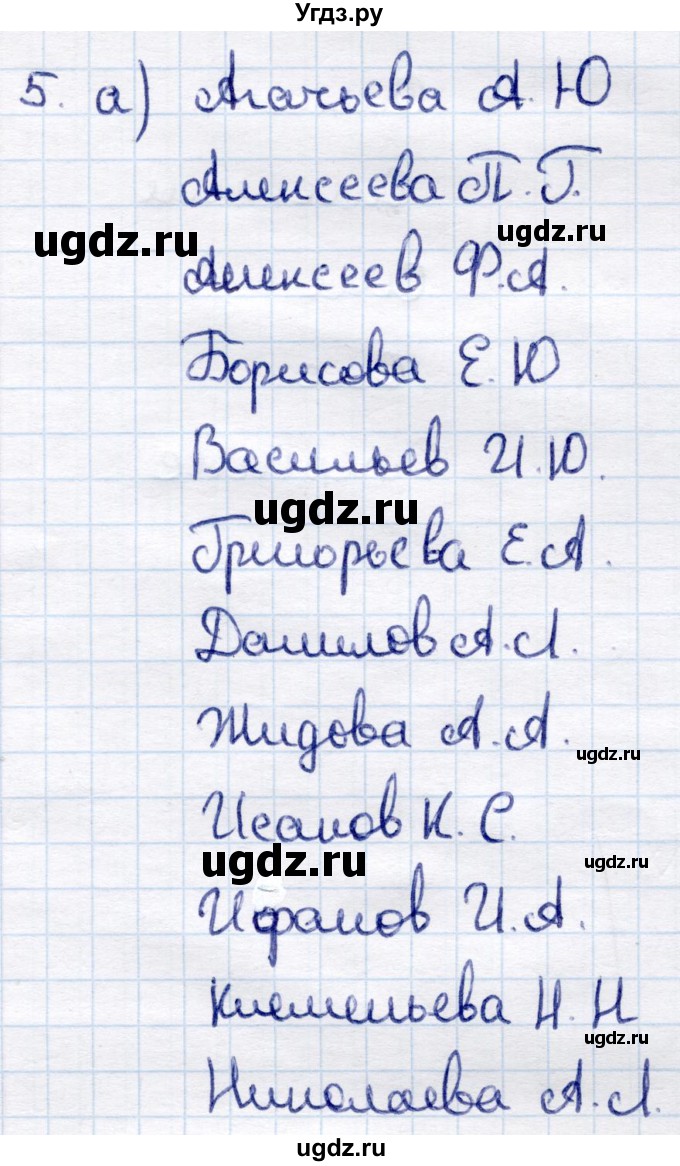 Угдз.ру
5. а) Агачьева А.Ю
Алексеева П.Г.
ugdz.ru
ugdz.ru
Алексеев Ф.А.
Борисова Е.Ю
Васильев И.Ю.
ugdz.ru
Григорьева Е.А.
Данилов А.Л.
Жидова А.А.
ugdz.ru
Исаков К.С.
ugdz.ru
ugdz.ru
Ифанов И.А.
Клементьева Н.Н
ugdz.ru
Николаева А.Л.
ugdz.ru